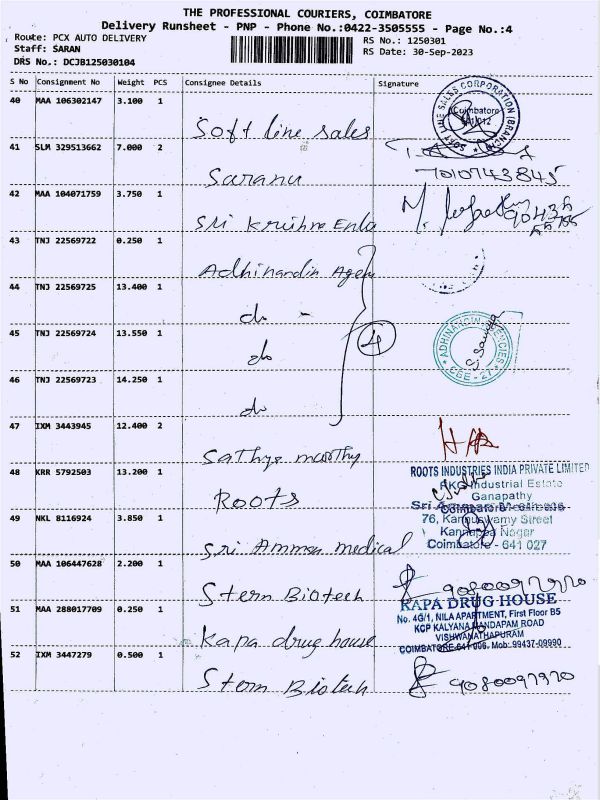 THE PROFESSIONAL COURIERS, COIMBATORE
Delivery Runsheet - PNP - Phone No.:0422-3505555 - Page No.:4
Route: PCX AUTO DELIVERY RS No.: 1250301
Staff: SARAN RS Date: 30-Sep-2023
DRS No.: DCJB125030104
S No Consignment No Weight PCS Consignee Details Signature
40 MAA 106302147 3.100 1
Soft line sales
SOFT LINE SALES CORPORATION (BRANCH)
Coimbatore
641 012
41 SLM 329513662 7.000 2
Saranu
7010743845
42 MAA 104071759 3.750 1
Sri Krishna Enta
43 TNJ 22569722 0.250 1
Adhinandin Agen
44 TNJ 22569725 13.400 1
do -
45 TNJ 22569724 13.550 1
do
4
CBE - 27
46 TNJ 22569723 14.250 1
do
47 IXM 3443945 12.400 2
Sathya moorthy
48 KRR 5792503 13.200 1
Roots
ROOTS INDUSTRIES INDIA PRIVATE LIMITED
RKG Industrial Estate
Ganapathy
49 NKL 8116924 3.850 1
Sri Amman medical
76, Karpuswamy Street
Kannappa Nagar
Coimbatore - 641 027
50 MAA 106447628 2.200 1
Stern Biotech
9080097970
51 MAA 288017709 0.250 1
Kapa drug house
KAPA DRUG HOUSE
No. 4G/1, NILA APARTMENT, First Floor B5
KCP KALYANA MANDAPAM ROAD
VISHWANATHAPURAM
COIMBATORE-641 006. Mob: 99437-09990
52 IXM 3447279 0.500 1
Stern Biotech
9080097970